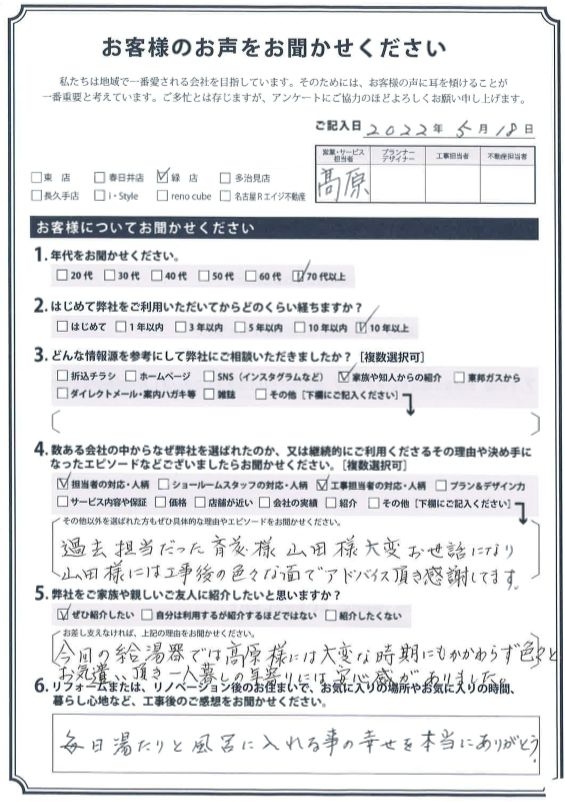 お客様のお声をお聞かせください
私たちは地域で一番愛される会社を目指しています。そのためには、お客様の声に耳を傾けることが
一番重要と考えています。ご多忙とは存じますが、アンケートにご協力のほどよろしくお願い申し上げます。
ご記入日 2022年 5月 18日
営業・サービス担当者 プランナーデザイナー 工事担当者 不動産担当者
高原
□東 店 □春日井店 ☑緑 店 □多治見店
□長久手店 □i・Style □reno cube □名古屋Rエイジ不動産
お客様についてお聞かせください
1.年代をお聞かせください。
□20代 □30代 □40代 □50代 □60代 ☑70代以上
2.はじめて弊社をご利用いただいてからどのくらい経ちますか?
□はじめて □1年以内 □3年以内 □5年以内 □10年以内 ☑10年以上
3.どんな情報源を参考にして弊社にご相談いただきましたか?[複数選択可]
□折込チラシ □ホームページ □SNS(インスタグラムなど) ☑家族や知人からの紹介 □東邦ガスから
□ダイレクトメール・案内ハガキ等 □雑誌 □その他[下欄にご記入ください]
4.数ある会社の中からなぜ弊社を選ばれたのか、又は継続的にご利用くださるその理由や決め手に
なったエピソードなどございましたらお聞かせください。[複数選択可]
☑担当者の対応・人柄 □ショールームスタッフの対応・人柄 ☑工事担当者の対応・人柄 □プラン&デザイン力
□サービス内容や保証 □価格 □店舗が近い □会社の実績 □紹介 □その他[下欄にご記入ください]
その他以外を選ばれた方もぜひ具体的な理由やエピソードをお聞かせください。
過去担当だった 様 山田様大変お世話になり
山田様には工事後の色々な面でアドバイス頂き感謝してます。
5.弊社をご家族や親しいご友人に紹介したいと思いますか?
☑ぜひ紹介したい □自分は利用するが紹介するほどではない □紹介したくない
お差し支えなければ、上記の理由をお聞かせください。
今回の給湯器では高原様には大変な時期にもかかわらず色々と
お気遣い頂き一人暮しの年寄りには安心感がありました。
6.リフォームまたは、リノベーション後のお住まいで、お気に入りの場所やお気に入りの時間、
暮らし心地など、工事後のご感想をお聞かせください。
毎日湯たりと風呂に入れる事の幸せを本当にありがとう!